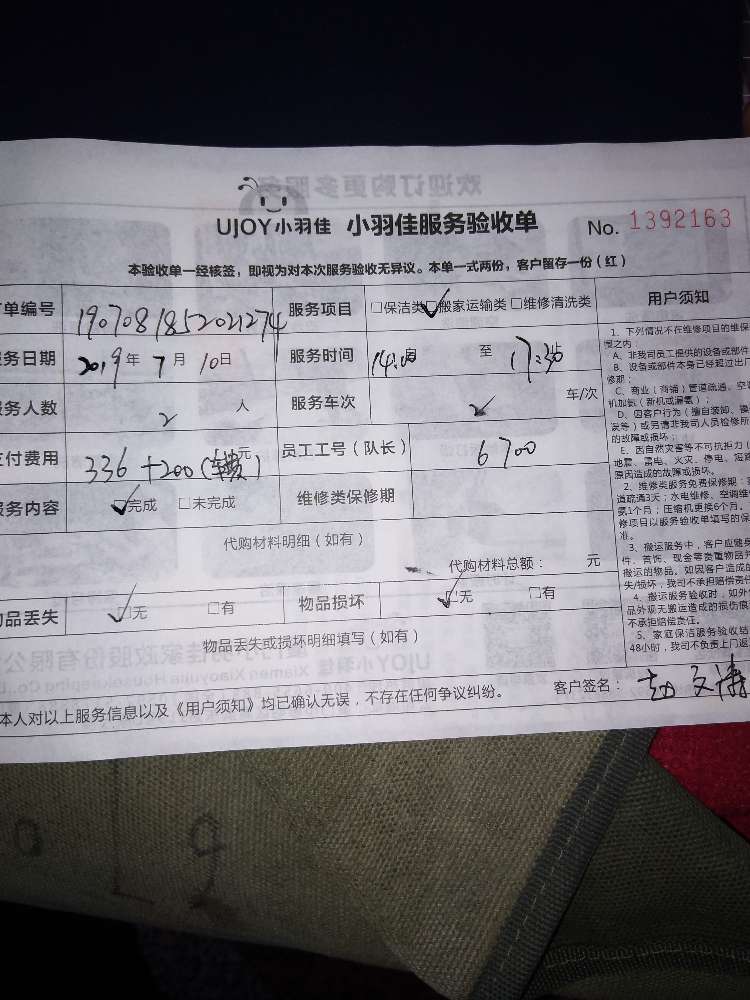 UJOY小羽佳 小羽佳服务验收单 No. 1392163
本验收单一经核签，即视为对本次服务验收无异议。本单一式两份，客户留存一份（红）
单编号 1907081852021274 服务项目 □保洁类 ☑搬家运输类 □维修清洗类 用户须知
务日期 2019年 7月 10日 服务时间 14:00 至 17:30
务人数 2 人 服务车次 2 车/次
付费用 336+200(车费) 元 员工工号（队长） 6700
务内容 ☑完成 □未完成 维修类保修期
代购材料明细（如有）
代购材料总额： 元
品丢失 ☑无 □有 物品损坏 ☑无 □有
物品丢失或损坏明细填写（如有）
本人对以上服务信息以及《用户须知》均已确认无误，不存在任何争议纠纷。 客户签名：赵文涛
1、下列情况不在维修项目的维保
A、非我司员工提供的设备或部件
B、设备或部件本身已经超过出厂
修期；
C、商业（商铺）管道疏通、空
机加氨（新机或漏氨）；
D、因客户行为（擅自装卸、
误等）或另请非我司人员检修所
的故障或损坏；
E、因自然灾害等不可抗拒力（
地震、雷电、火灾、停电、短路
原因造成的故障或损坏。
2、维修类服务免费保修期：
道疏通3天；水电维修、空调维
氨1个月；压缩机更换6个月。
修项目以服务验收单填写的保
准。
3、搬运服务中，客户应随身
件、首饰、现金等贵重物品
搬运的物品。如因客户造成的
失/损坏，我司不承担赔偿责任
4、搬运服务验收时，如外
品外观无搬运造成的损伤痕
不承担赔偿责任。
5、家庭保洁服务验收结
48小时，我司不负责上门返